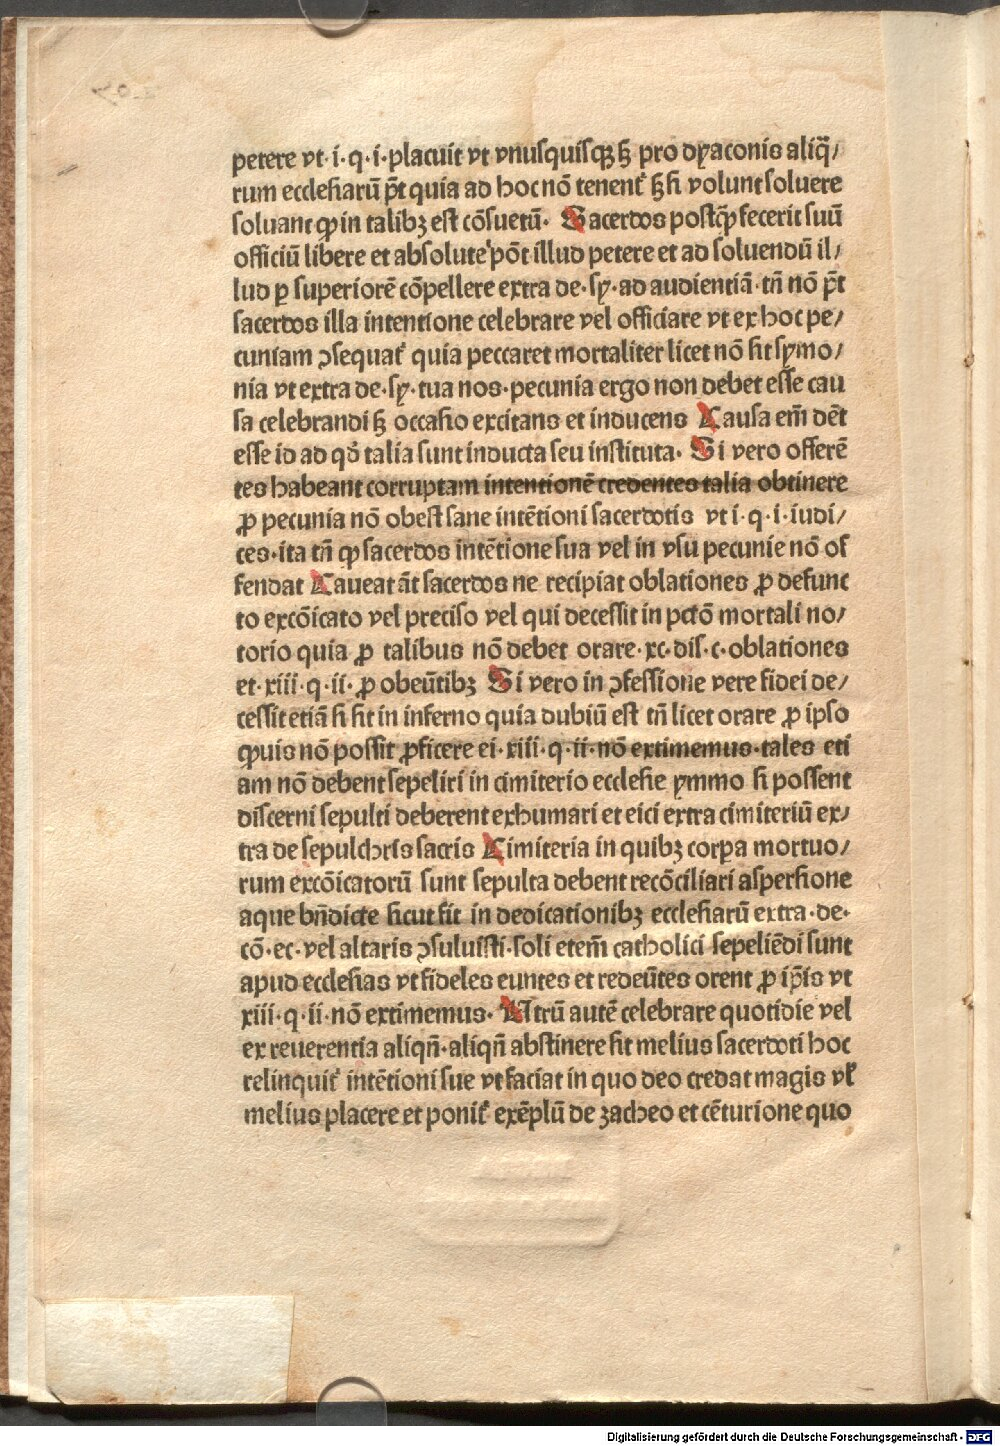 petere vt· i· q· i· placuit vt vnusquisqꝫ ꝭ pro dyaconis aliq̄/
rum ecclesiarū p̄t quia ad hoc nō tenent᷑ ꝭ si volunt soluere
soluant ꝙ in talibꝫ est cōsuetū· Sacerdos postꝙ̄ fecerit suū
officiū libere et absolute pōt illud petere et ad soluendū il/
lud ꝑ superiorē cōpellere extra de· sy· ad audientiā· tn̄ nō p̄t
sacerdos illa intentione celebrare vel officiare vt ex hoc pe/
cuniam ꝯsequat᷑ quia peccaret mortaliter licet nō sit symo/
nia vt extra de· sy· tua nos· pecunia ergo non debet esse cau
sa celebrandi ꝭ occasio excitans et inducens Causa em̄ dēt
esse id ad qd̓ talia sunt inducta seu instituta· Si vero offerē
tes habeant corruptam intentionē credentes talia obtinere
ꝓ pecunia nō obest sane intētioni sacerdotis vt i· q· i· iudi/
ces· ita tn̄ ꝙ sacerdos intētione sua vel in vsu pecunie nō of
fendat Caueat āt sacerdos ne recipiat oblationes ꝓ defunc
to excōicato vel preciso vel qui decessit in pctō mortali no/
torio quia ꝓ talibus nō debet orare· xc· dis· c· oblationes
et· xiii· q· ii· ꝓ obeūtibꝫ Si vero in ꝯfessione vere fidei de/
cessit etiā si sit in inferno quia dubiū est tn̄ licet orare ꝓ ipso
ꝙuis nō possit ꝓficere ei· xiii· q· ii· nō extimemus· tales eti
am nō debent sepeliri in cimiterio ecclesie ymmo si possent
discerni sepulti deberent exhumari et eici extra cimiteriū ex/
tra de sepulchris sacris Cimiteria in quibꝫ corpa mortuo/
rum excōicatorū sunt sepulta debent recōciliari aspersione
aque bn̄dicte sicut fit in dedicationibꝫ ecclesiarū extra· de·
cō· ec· vel altaris ꝯsuluisti· soli etem̄ catholici sepeliēdi sunt
apud ecclesias vt fideles euntes et redeūtes orent ꝓ ip̄is vt
xiii· q· ii· nō extimemus· Utrū autē celebrare quotidie vel
ex reuerentia aliqn̄· aliqn̄ abstinere sit melius sacerdoti hoc
relinquit᷑ intētioni sue vt faciat in quo deo credat magis vl̓
melius placere et ponit᷑ exēplū de zacheo et cēturione quo
Digitalisierung gefördert durch die Deutsche Forschungsgemeinschaft · DFG